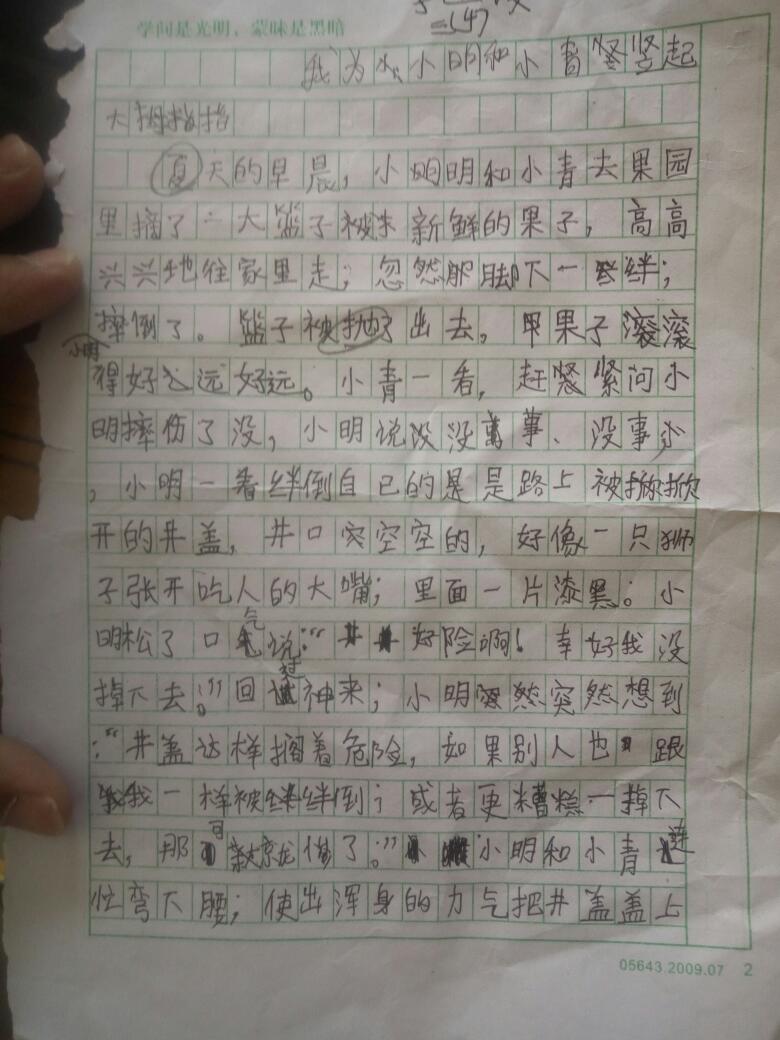 学问是光明，蒙昧是黑暗
我为小明和小青竖起
大拇指
夏天的早晨，小明和小青去果园
里摘了一大篮子新鲜的果子，高高
兴兴地往家里走；忽然脚下一绊；
摔倒了。篮子被抛了出去，果子滚
小明
得好远好远。小青一看，赶紧问小
明摔伤了没，小明说没事、没事
，小明一看绊倒自己的是路上被掀
开的井盖，井口空空的，好像一只狮
子张开吃人的大嘴；里面一片漆黑。小
明松了口气说：“好险啊！幸好我没
掉下去。”回过神来；小明突然想到
：“井盖这样搁着危险，如果别人也跟
我一样被绊倒；或者更糟糕一掉下
去，那可就惨了。”小明和小青连
忙弯下腰；使出浑身的力气把井盖盖上
05643.2009.07 2